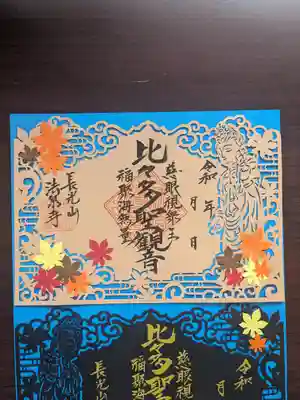 令和　年　月　日
慈眼視衆生
福聚海無量
比々多聖觀音
長光山
令和　月
慈眼視
福聚海無
比々多聖
長光山